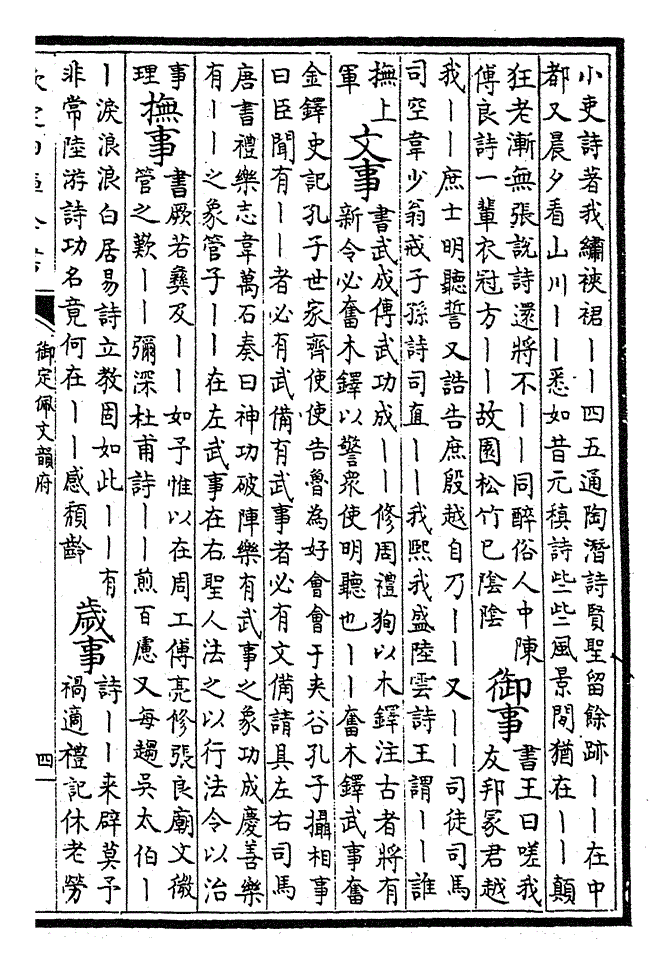 小吏詩著我繡裌裙丨丨四五通陶潛詩賢聖留餘跡丨丨在中
都又晨夕看山川丨丨悉如昔元稹詩些些風景閒猶在丨丨顛
狂老漸無張說詩還將不丨丨同醉俗人中陳
傅良詩一輩衣冠方丨丨故園松竹已陰陰
御事
書王曰嗟我
友邦冢君越
我丨丨庶士明聽誓又誥告庶殷越自乃丨丨又丨丨司徒司馬
司空韋少翁戒子孫詩司直丨丨我熙我盛陸雲詩王謂丨丨誰
撫上
軍
文事
書武成傳武功成丨丨修周禮狥以木鐸注古者將有
新令必奮木鐸以警衆使明聽也丨丨奮木鐸武事奮
金鐸史記孔子世家齊使使告魯為好會會于夾谷孔子攝相事
曰臣聞有丨丨者必有武備有武事者必有文備請具左右司馬
唐書禮樂志韋萬石奏曰神功破陣樂有武事之象功成慶善樂
有丨丨之象管子丨丨在左武事在右聖人法之以行法令以治
事
理
撫事
書厥若彝及丨丨如予惟以在周工傅亮修張良廟文微
管之歎丨丨彌深杜甫詩丨丨煎百慮又每趨吳太伯丨
丨淚浪浪白居易詩立教固如此丨丨有
非常陸游詩功名竟何在丨丨感頹齡
歲事
詩丨丨来辟莫予
禍適禮記休老勞
御定佩文韻府
四